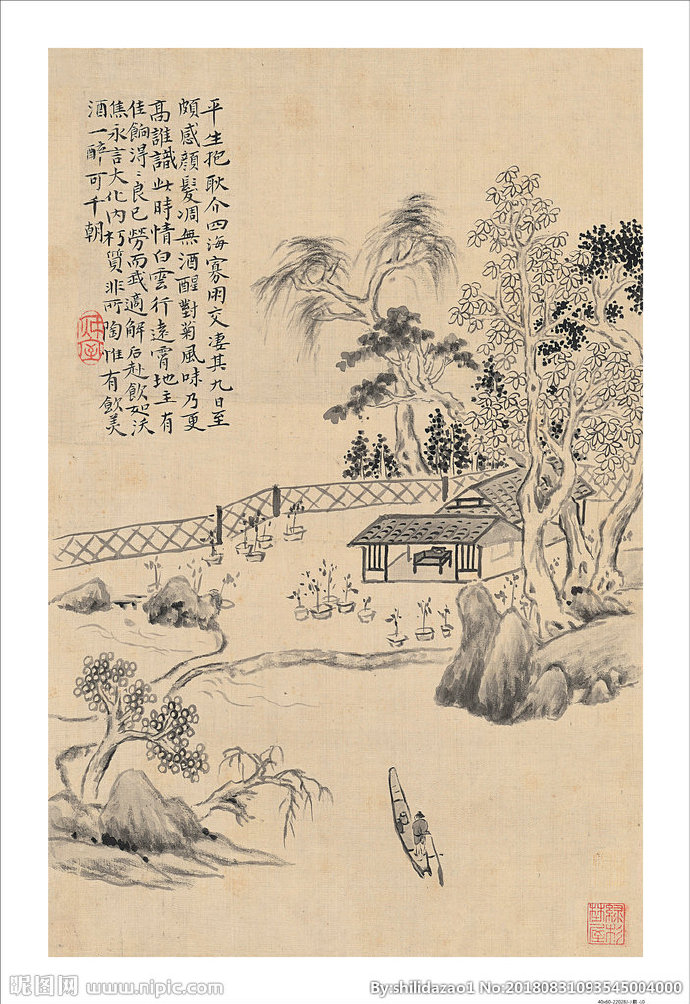 平生抱耿介四海寡朋交凄其九日至
頗感顏髮凋無酒醒對菊風味乃更
高誰識此時情白雲行遠霄地主有
佳餉得〻良已勞而我適解后赴飲如沃
焦永言大化內朽質非所陶惟有飲美
酒一醉可千朝
綠杉埜屋
昵图网 www.nipic.com
By:shilidazao1 No:20180831093545004000